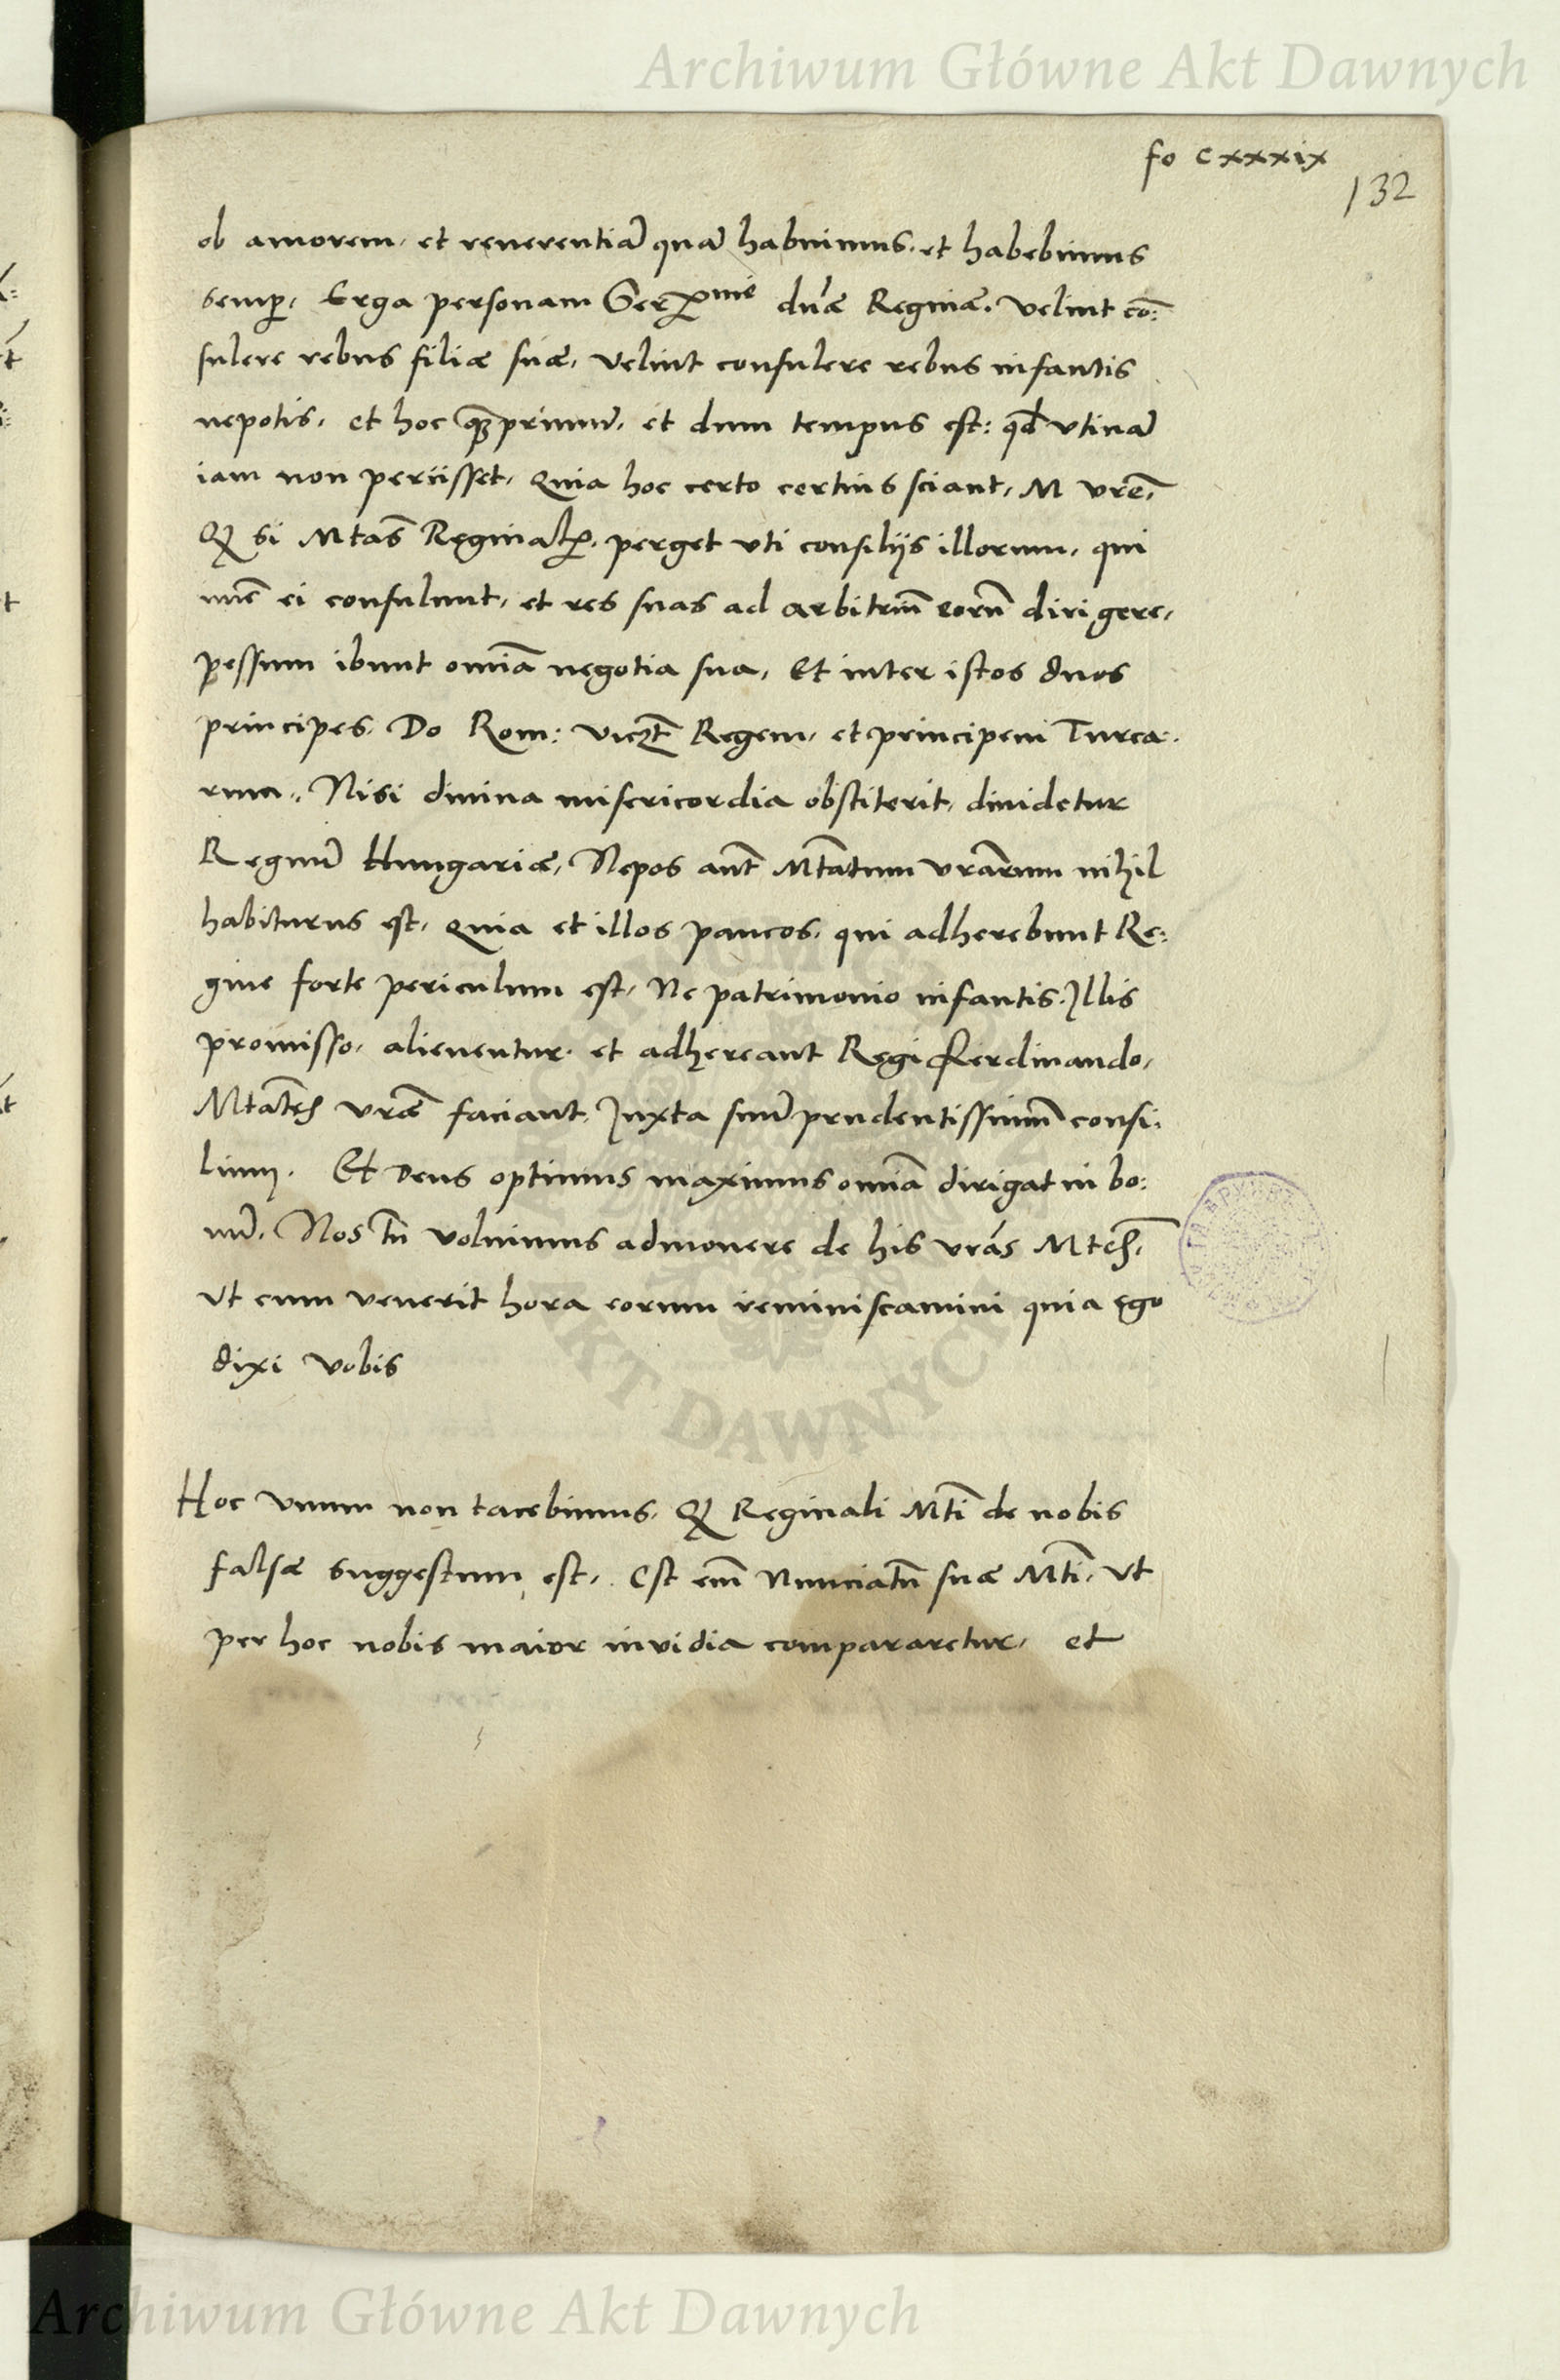 Archiwum Główne Akt Dawnych
fo cxxxix
132
ob amorem, et reuerentiā quā habuimus, et habebimus
semp, Erga personam Ser^me dnæ Reginæ, Velint cō:
sulere rebus filiæ suæ, Velint consulere rebus infantis
nepotis, et hoc q̃primū, et dum tempus est: qd vtinā
iam non periisset, Quia hoc certo certius sciant, M vre,
Q si Mtas Reginalis, perget vti consilijs illorum, qui
nūc ei consulunt, et res suas ad arbitriū eorū dirigere,
pessum ibunt omīa negotia sua, Et inter istos duos
principes, Do Rom: Regem, et principem Turca:
rum, Nisi diuina misericordia obstiterit, diuidetur
Regnū Hungariæ, Nepos aūt Mtatum vrarum nihil
habiturus est, quia et illos paucos, qui adherebunt Re:
gine forte periculum est, Ne patrimonio infantis, Illis
promisso, alienentur, et adhereant Regi Ferdinando,
Mtates vræ faciant, Juxta suū prudentissimū consi:
lium. Et Deus optimus maximus omīa dirigat in bo:
nū, Nos tn̄ voluimus admonere de his vras Mtes,
Vt cum venerit hora eorum reminiscamini quia ego
dixi vobis
Hoc vnum non tacebimus, Q Reginali Mti de nobis
falsæ suggestum est, Est em̄ Nunciatū suæ Mti, Vt
per hoc nobis maior inuidia compararetur, et
AKT DAWNYCH
Archiwum Główne Akt Dawnych